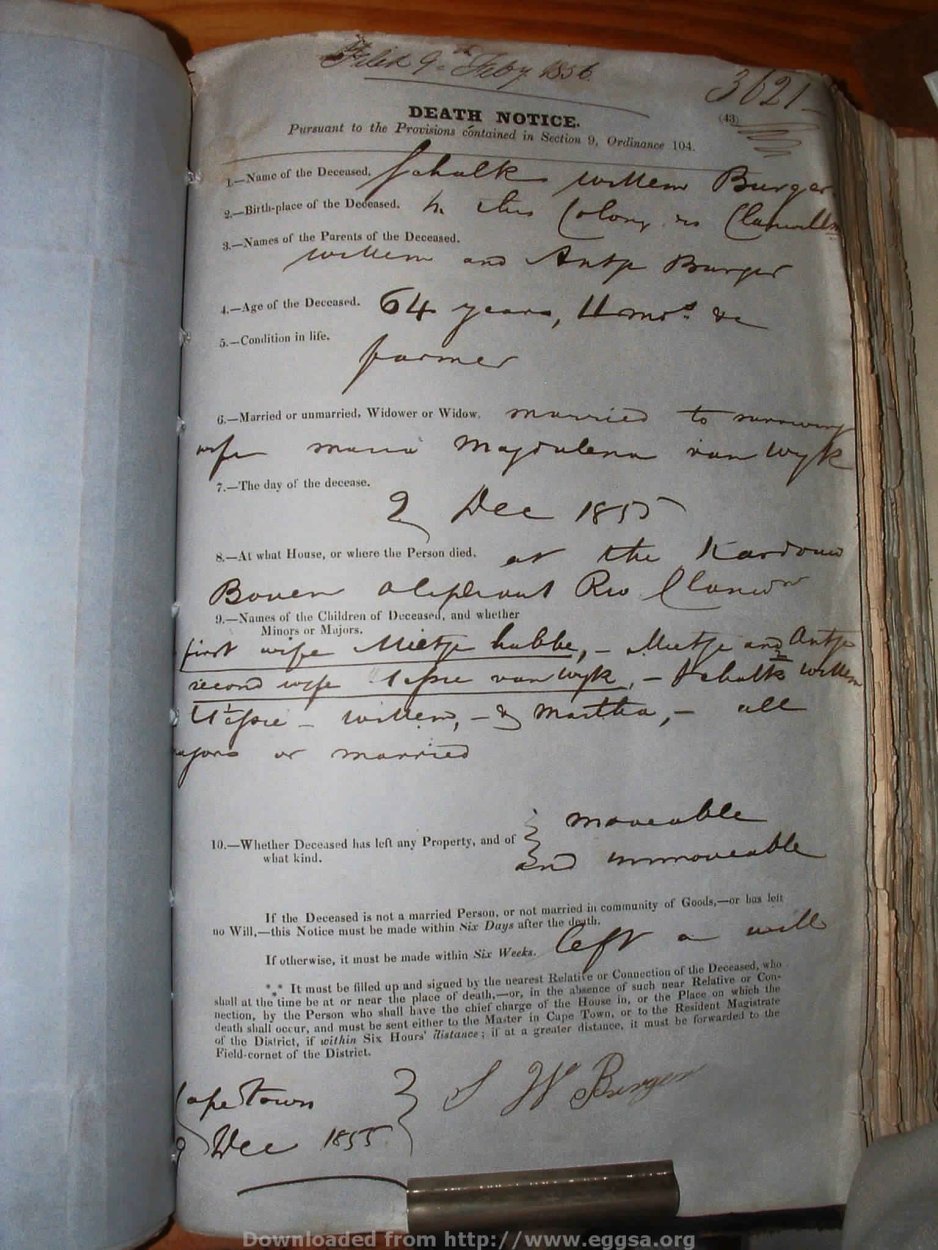 Filed 9th Feby 1856
3621
(43)
DEATH NOTICE.
Pursuant to the Provisions contained in Section 9, Ordinance 104.
1.—Name of the Deceased. Schalk Willem Burger
2.—Birth-place of the Deceased. In this Colony
3.—Names of the Parents of the Deceased.
Willem and Antje Burger
4.—Age of the Deceased. 64 years, 11 mos. &c
5.—Condition in life.
farmer
6.—Married or unmarried, Widower or Widow. married to surviving
wife Maria Magdalena van Wyk
7.—The day of the decease.
2 Dec 1855
8.—At what House, or where the Person died. at the Kardouw
Boven Olifant Riv Clanwm
9.—Names of the Children of Deceased, and whether
Minors or Majors.
first wife Mietje lubbe, — Mietje and Antje
second wife van Wyk, — Schalk Willem
— Willem, — & Martha, — all
majors or married
10.—Whether Deceased has left any Property, and of
what kind.
moveable
and immoveable
If the Deceased is not a married Person, or not married in community of Goods,—or has left
no Will,—this Notice must be made within Six Days after the death.
If otherwise, it must be made within Six Weeks. left a will
*** It must be filled up and signed by the nearest Relative or Connection of the Deceased, who
shall at the time be at or near the place of death,—or, in the absence of such near Relative or Con-
nection, by the Person who shall have the chief charge of the House in, or the Place on which the
death shall occur, and must be sent either to the Master in Cape Town, or to the Resident Magistrate
of the District, if within Six Hours' distance; if at a greater distance, it must be forwarded to the
Field-cornet of the District.
Cape Town
Dec 1855
S W Burger
Downloaded from http://www.eggsa.org